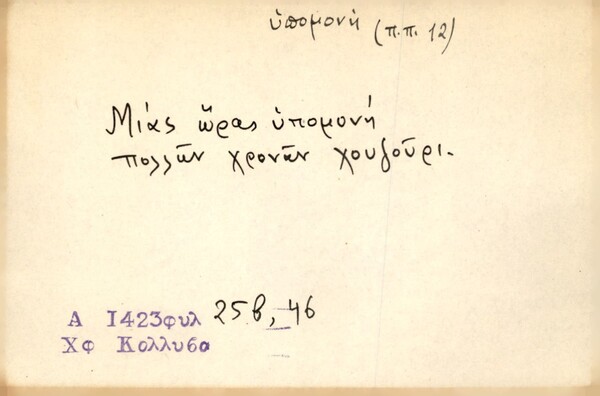 ὑπομονή (π.π. 12)
Μιᾶς ὥρας ὑπομονή
πολλῶν χρονῶν χουζούρι.
Α 1423φυλ 25β, 46
Χφ Κολλυβα